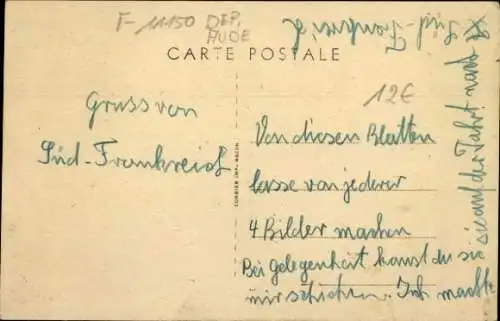 F-11150 DEP.
AUDE
CARTE POSTALE
12€
Gruss von
Süd-Frankreich
COMBIER IMP. MACON
Von diesen Blätten
lasse von jederer
4 Bilder machen
Bei Gelegenheit kanst du sie
mir schicken. Ich machte
sie auf der Fahrt nach
Süd-Frankreich